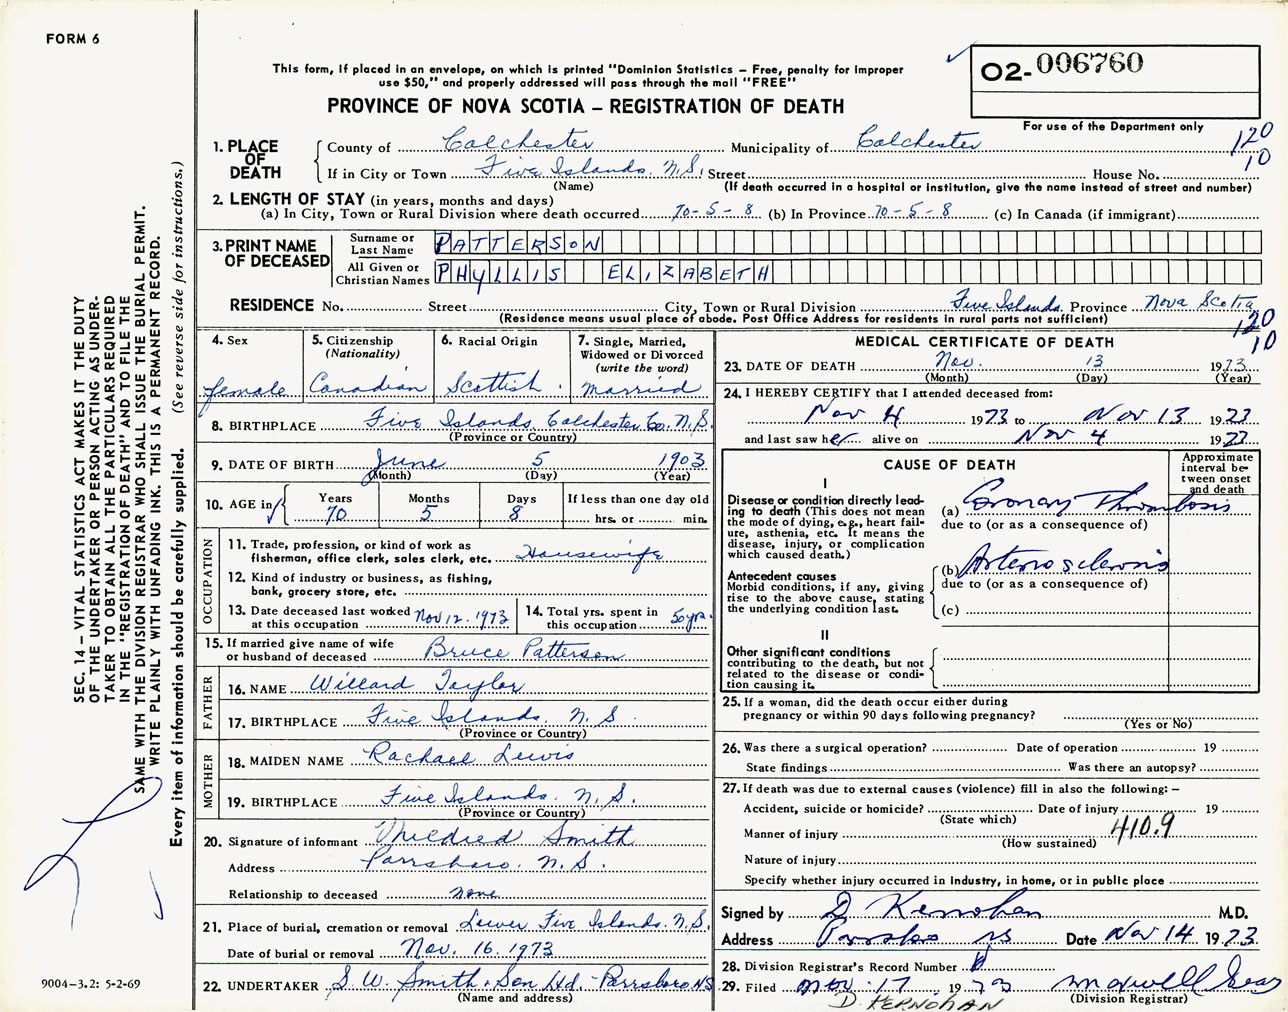 FORM 6
This form, if placed in an envelope, on which is printed "Dominion Statistics – Free, penalty for improper
use $50," and properly addressed will pass through the mail "FREE"
PROVINCE OF NOVA SCOTIA – REGISTRATION OF DEATH
O2- 006760
For use of the Department only
120
10
1. PLACE OF DEATH
County of Colchester Municipality of Colchester
If in City or Town Five Islands. N.S. Street House No.
(Name) (If death occurred in a hospital or institution, give the name instead of street and number)
2. LENGTH OF STAY (in years, months and days)
(a) In City, Town or Rural Division where death occurred 70-5-8 (b) In Province 70-5-8 (c) In Canada (if immigrant)
3. PRINT NAME OF DECEASED
Surname or Last Name PATTERSON
All Given or Christian Names PHYLLIS ELIZABETH
RESIDENCE No. Street City, Town or Rural Division Five Islands Province Nova Scotia
(Residence means usual place of abode. Post Office Address for residents in rural parts not sufficient)
120
10
4. Sex
female
5. Citizenship
(Nationality)
Canadian
6. Racial Origin
Scottish.
7. Single, Married,
Widowed or Divorced
(write the word)
Married
8. BIRTHPLACE Five Islands, Colchester Co. N.S.
(Province or Country)
9. DATE OF BIRTH June 5 1903
(Month) (Day) (Year)
10. AGE in
Years Months Days If less than one day old
70 5 8 hrs. or min.
OCCUPATION
11. Trade, profession, or kind of work as
fisherman, office clerk, sales clerk, etc. Housewife
12. Kind of industry or business, as fishing,
bank, grocery store, etc.
13. Date deceased last worked
at this occupation Nov 12. 1973
14. Total yrs. spent in
this occupation 50 yrs.
15. If married give name of wife
or husband of deceased Bruce Patterson
FATHER
16. NAME Willard Taylor
17. BIRTHPLACE Five Islands. N.S.
(Province or Country)
MOTHER
18. MAIDEN NAME Rachael Lewis
19. BIRTHPLACE Five Islands. N.S.
(Province or Country)
20. Signature of informant Mildred Smith
Address Parrsboro. N.S.
Relationship to deceased none
21. Place of burial, cremation or removal Lower Five Islands. N.S.
Date of burial or removal Nov. 16. 1973
22. UNDERTAKER S. W. Smith & Son Ltd - Parrsboro NS
(Name and address)
MEDICAL CERTIFICATE OF DEATH
23. DATE OF DEATH Nov. 13 1973
(Month) (Day) (Year)
24. I HEREBY CERTIFY that I attended deceased from:
Nov 4 1973 to Nov 13 1973
and last saw her alive on Nov 4 1973
CAUSE OF DEATH
Approximate
interval be-
tween onset
and death
I
Disease or condition directly lead-
ing to death (This does not mean
the mode of dying, e.g., heart fail-
ure, asthenia, etc. It means the
disease, injury, or complication
which caused death.)
(a) Coronary Thrombosis
due to (or as a consequence of)
Antecedent causes
Morbid conditions, if any, giving
rise to the above cause, stating
the underlying condition last.
(b) Arteriosclerosis
due to (or as a consequence of)
(c)
II
Other significant conditions
contributing to the death, but not
related to the disease or condi-
tion causing it.
25. If a woman, did the death occur either during
pregnancy or within 90 days following pregnancy?
(Yes or No)
26. Was there a surgical operation? Date of operation 19
State findings Was there an autopsy?
27. If death was due to external causes (violence) fill in also the following: –
Accident, suicide or homicide? Date of injury 19
(State which)
410.9
Manner of injury
(How sustained)
Nature of injury
Specify whether injury occurred in industry, in home, or in public place
Signed by D Kernohan M.D.
Address Parrsboro NS Date Nov 14 1973
28. Division Registrar's Record Number
29. Filed Nov. 17 1973 Maxwell
(Division Registrar)
D. KERNOHAN
SEC. 14 – VITAL STATISTICS ACT MAKES IT THE DUTY
OF THE UNDERTAKER OR PERSON ACTING AS UNDER-
TAKER TO OBTAIN ALL THE PARTICULARS REQUIRED
IN THE "REGISTRATION OF DEATH" AND TO FILE THE
SAME WITH THE DIVISION REGISTRAR WHO SHALL ISSUE THE BURIAL PERMIT.
WRITE PLAINLY WITH UNFADING INK. THIS IS A PERMANENT RECORD.
Every item of information should be carefully supplied. (See reverse side for instructions.)
9004-3.2: 5-2-69